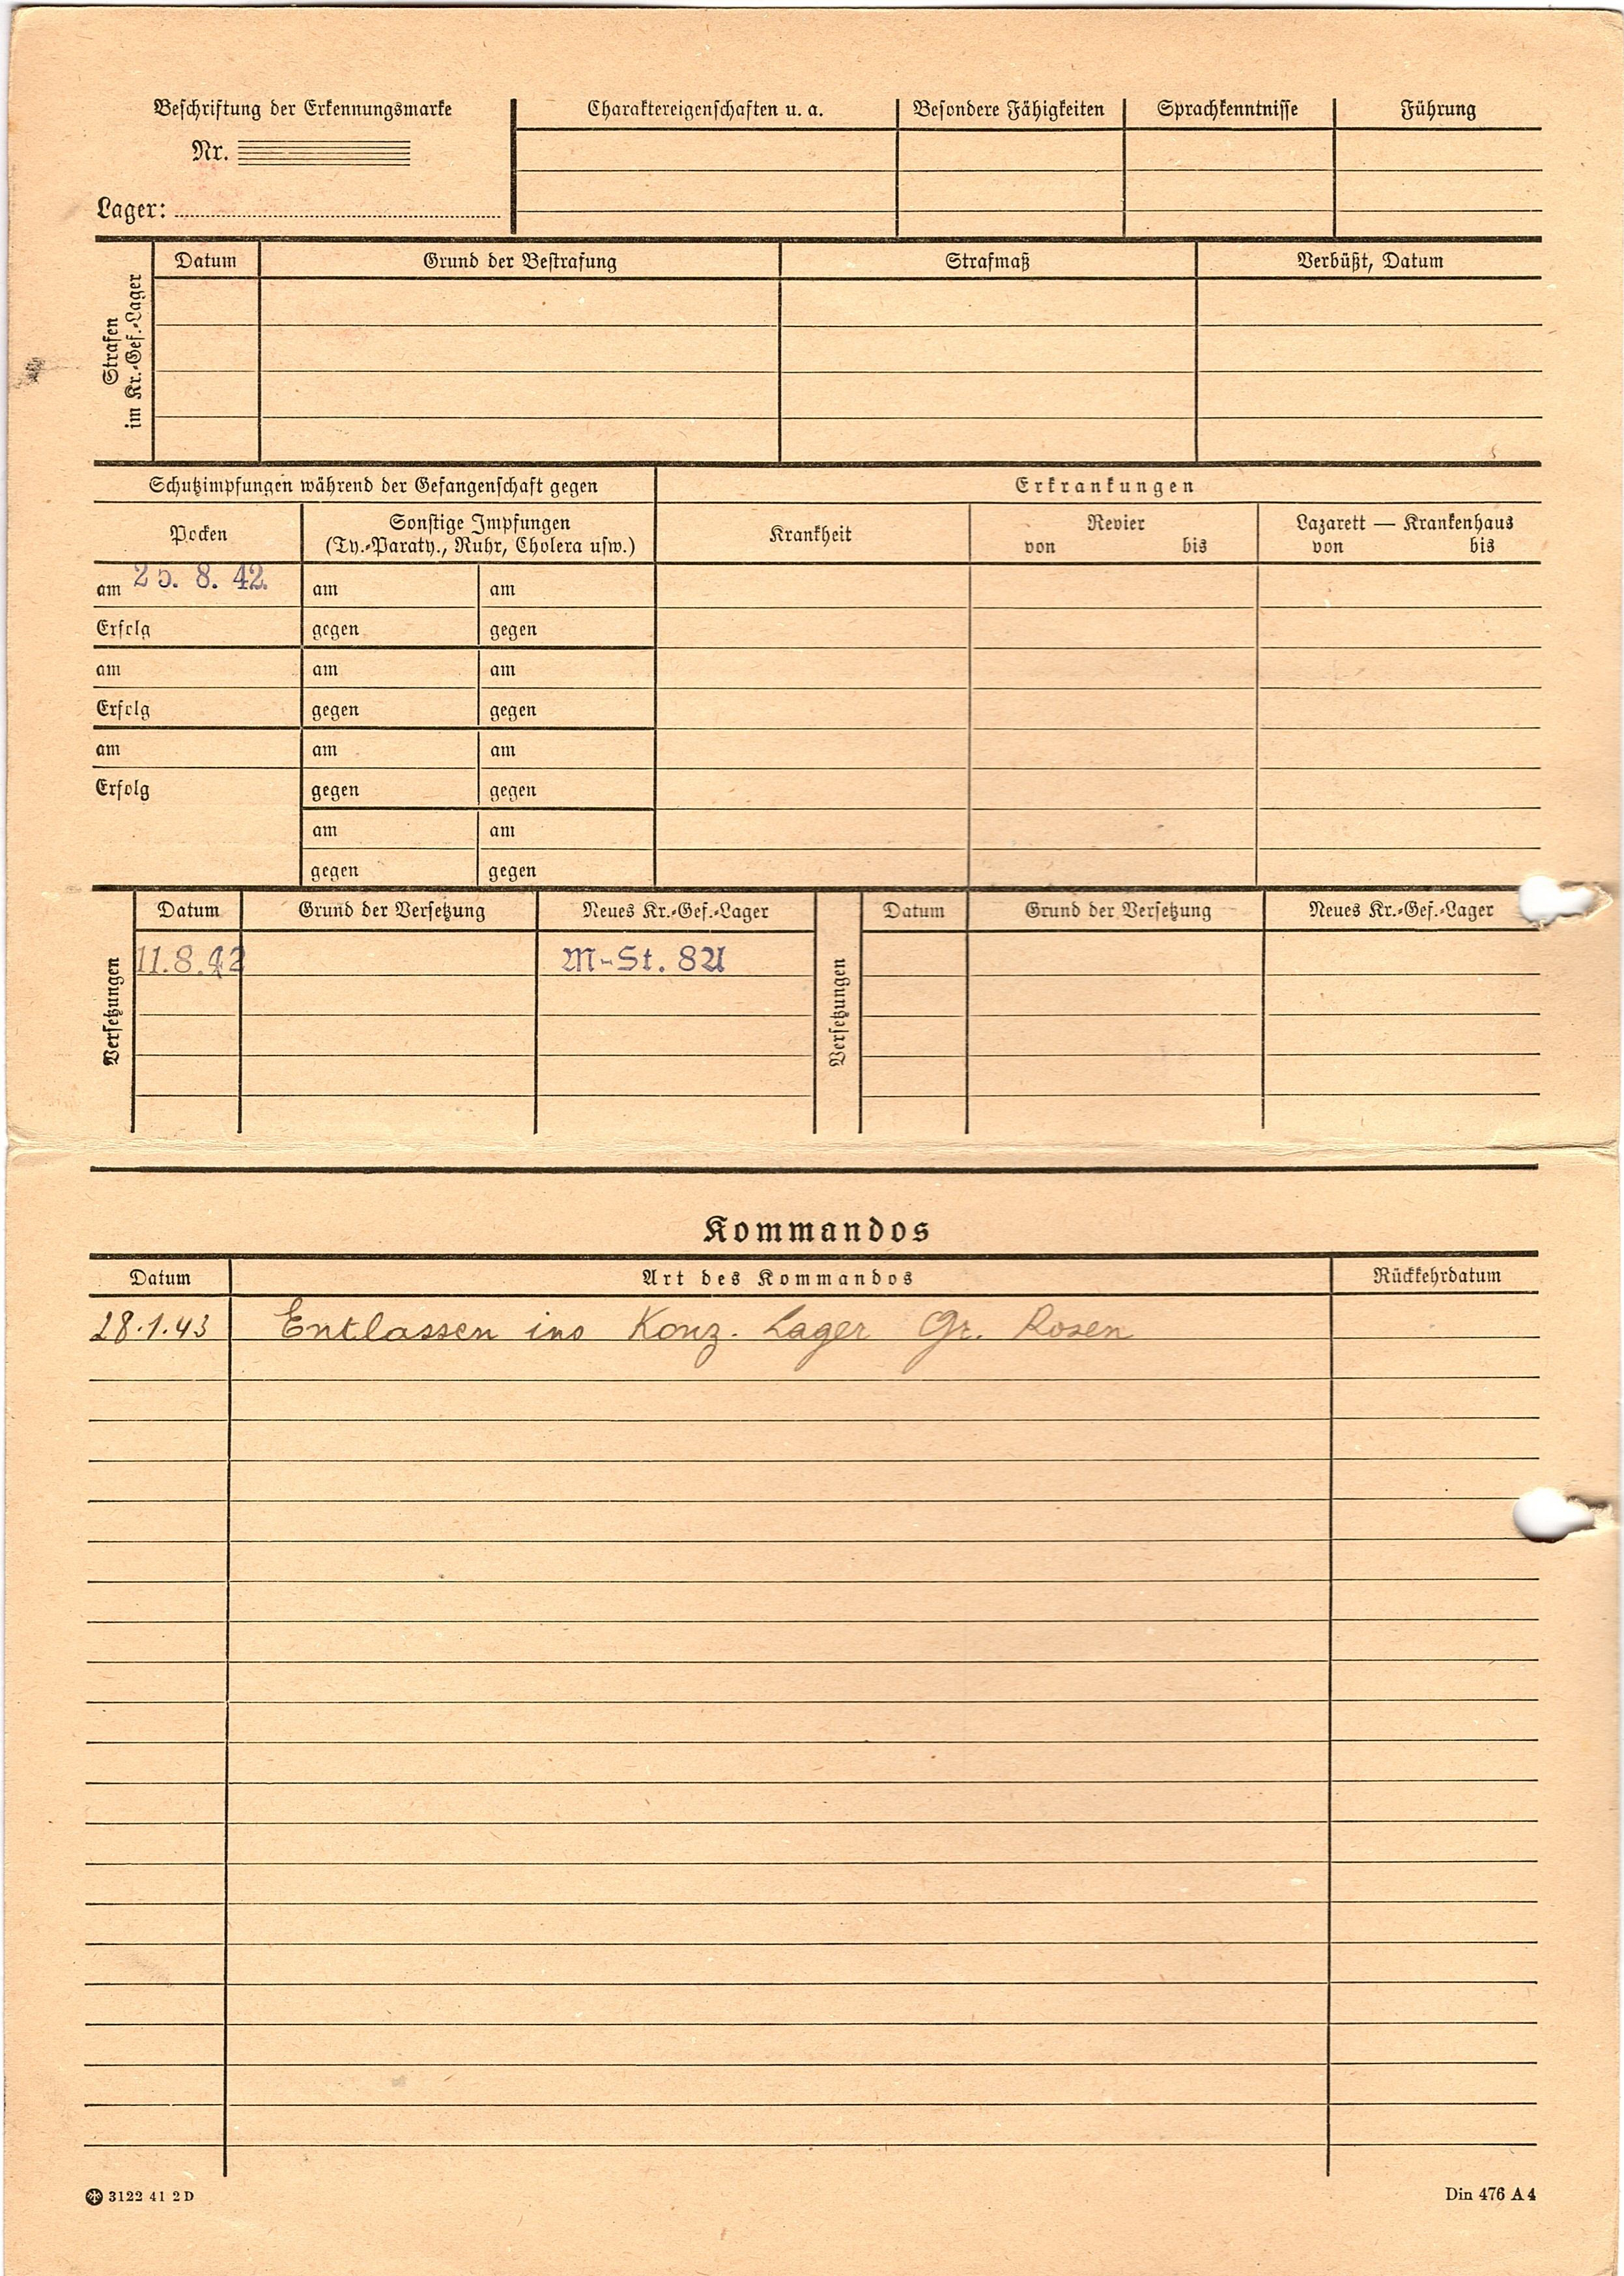 Beschriftung der Erkennungsmarke
Nr.
Lager:
Charaktereigenschaften u. a.
Besondere Fähigkeiten
Sprachkenntnisse
Führung
Strafen
im Kr.-Gef.-Lager
Datum
Grund der Bestrafung
Strafmaß
Verbüßt, Datum
Schutzimpfungen während der Gefangenschaft gegen
Erkrankungen
Pocken
Sonstige Impfungen
(Ty.-Paraty., Ruhr, Cholera usw.)
Krankheit
Revier
von bis
Lazarett — Krankenhaus
von bis
am 25. 8. 42. am am
Erfolg gegen gegen
am am am
Erfolg gegen gegen
am am am
Erfolg gegen gegen
am am
gegen gegen
Versetzungen
Datum Grund der Versetzung Neues Kr.-Gef.-Lager
11.8.42 M-St. 8A
Versetzungen
Datum Grund der Versetzung Neues Kr.-Gef.-Lager
Kommandos
Datum Art des Kommandos Rückkehrdatum
28.1.43 Entlassen ins Konz. Lager Gr. Rosen
3122 41 2 D
Din 476 A 4